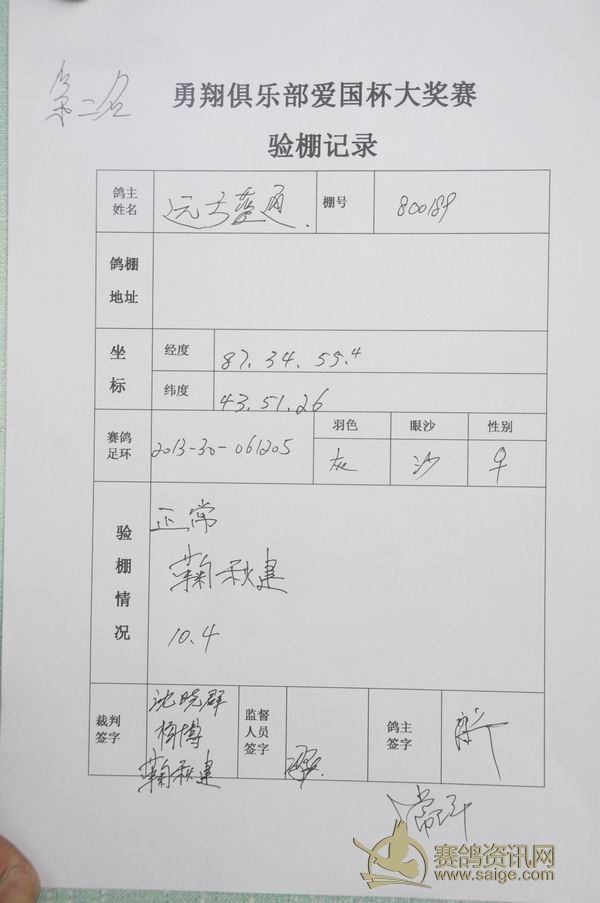 第二名
勇翔俱乐部爱国杯大奖赛
验棚记录
鸽主姓名 远方蓝通 棚号 800189
鸽棚地址
坐标 经度 87.34.55.4
纬度 43.51.26
赛鸽足环 2013-30-061205 羽色 眼沙 性别
灰 沙 ♀
验棚情况 正常
鞠秋建
10.4
裁判签字 沈晓群 监督人员签字 鸽主签字
鞠秋建
赛鸽资讯网
www.saige.com